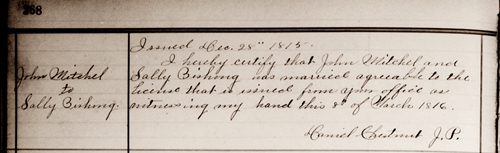 268
Issued Dec. 28" 1815.
I hereby certify that John Mitchel and
Sally Bishing was married agreeable to the
license that is issued from your office as
witnessing my hand this 8th of March 1816.
Daniel Chestnut J.P.
John Mitchel
to
Sally Bishing